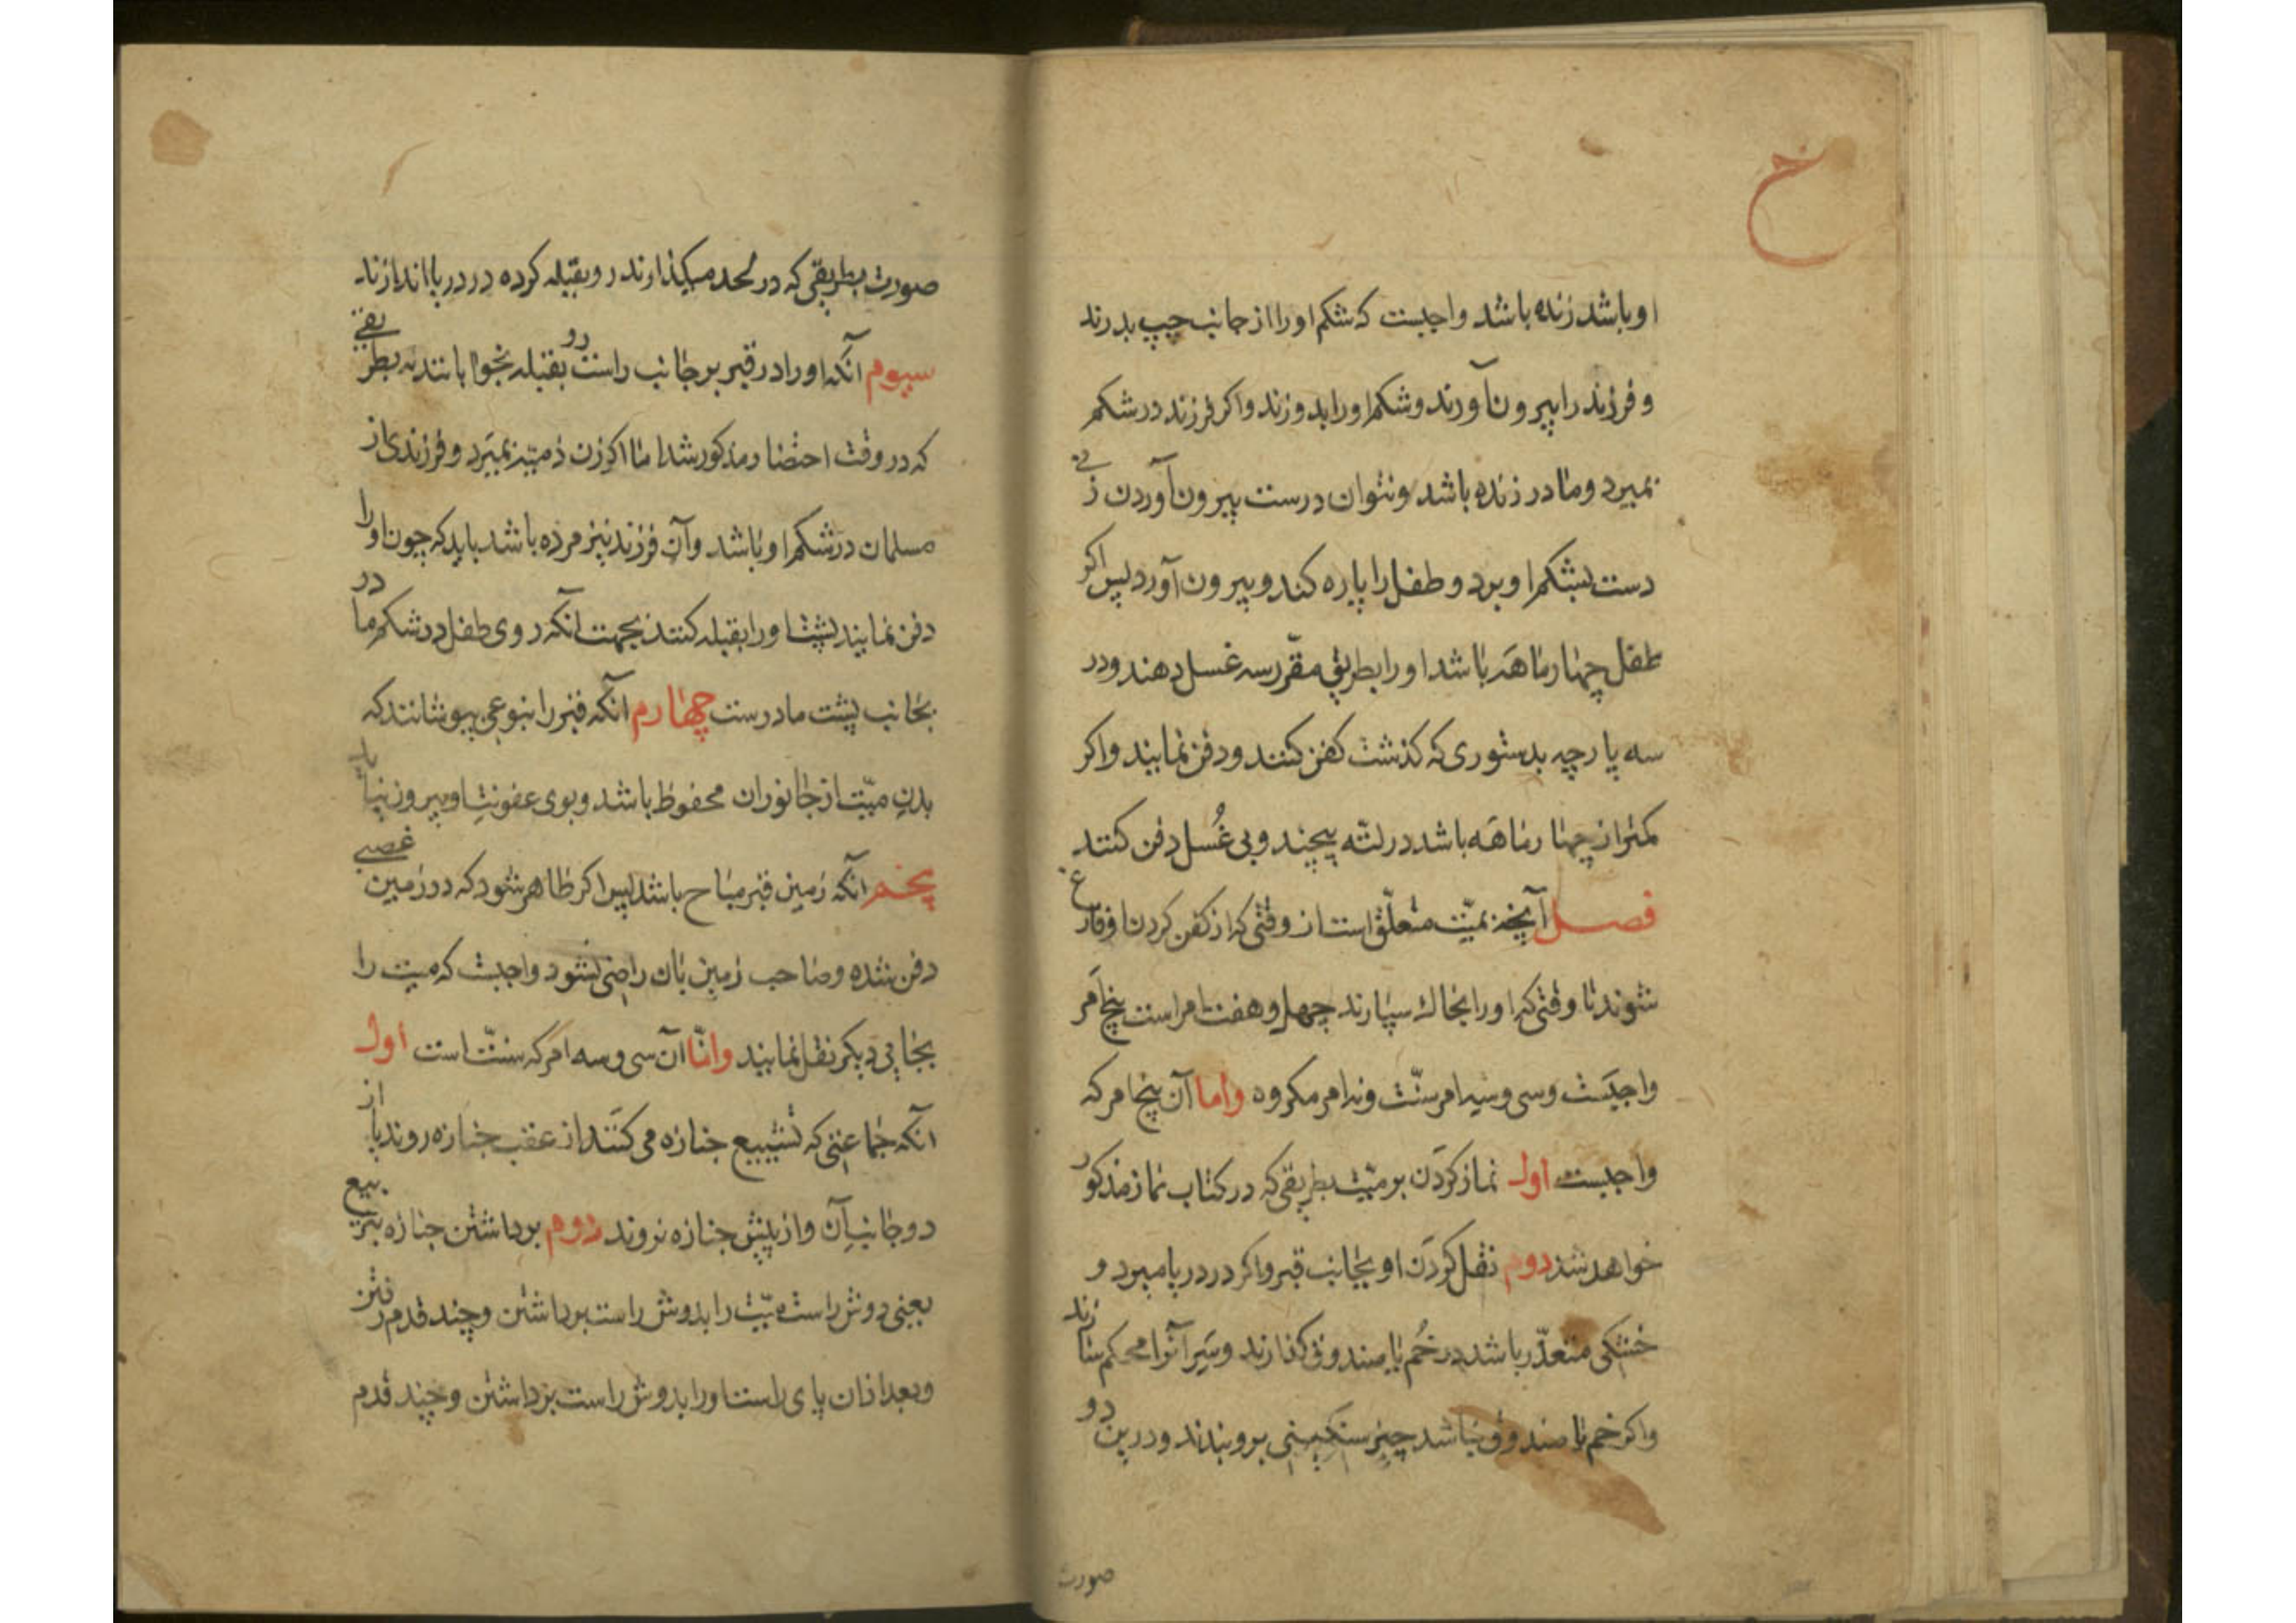 خ
او باشد زنده باشد واجبست که شکم او را از جانب چپ بدرند
و فرزند را بیرون آورند و شکم او را بدوزند و اکر فرزند در شکم
بمیرد و مادر زنده باشد و نتوان درست بیرون آوردن زنی
دست بشکم او برد و طفل را پاره کند و بیرون آورد پس اکر
طفل چهار ماهه باشد او را بطریق مقرّر سه غسل دهند و در
سه پارچه بدستوری که کذشت کفن کنند و دفن نمایند و اکر
کمتر از چهار ماهه باشد در لتّه پیچند و بی غُسل دفن کنند
فصل آنچه بمیّت متعلّق است از وقتی که از کفن کردن او فارغ
شوند تا وقتی که او را بخاك سپارند چهل و هفت امر است پنج امر
واجبست و سی و سه امر سنّت و نه امر مکروه واما آن پنج امر که
واجبست اول نماز کردن بر میّت بطریقی که در کتاب نماز مذکور
خواهد شد دوم نقل کردن او بجانب قبر و اکر در دریا میرد و
خشکی متعذّر باشد در خُم یا صندوق کذارند و سَر آنرا محکم سازند
و اکر خم یا صندوق نباشد چیز سنکینی برو بندند و درین دو
صورت
صورت بطریقی که در لحد میکذارند رو بقبله کرده در دریا اندازند
سیوم آنکه او را در قبر بر جانب راست رو بقبله بخوابانند نه بطریقی
که در وقت احتضار مذکور شد اما اکر زن ذمیّه بمیرد و فرزندی از
مسلمان در شکم او باشد و آن فرزند نیز مرده باشد باید که چون او را
دفن نمایند پشت او را بقبله کنند بجهت آنکه روی طفل در شکم مادر
بجانب پشت مادرست چهارم آنکه قبر را بنوعی بپوشانند که
بدن میّت از جانوران محفوظ باشد و بوی عفونت او بیرون نیاید
پنجم آنکه زمین قبر مباح باشد پس اکر ظاهر شود که در زمین غصبی
دفن شده و صاحب زمین بان راضی نشود واجبست که میت را
بجایی دیکر نقل نمایند وامّا آن سی و سه امر که سنّت است اول
آنکه جماعتی که تشییع جنازه می کنند از عقب جنازه روند یا از
دو جانب آن و از پیش جنازه نروند دوم برداشتن جنازه بتربیع
یعنی دوش راست میّت را بدوش راست برداشتن و چند قدم رفتن
و بعد از ان پای راست او را بدوش راست برداشتن و چند قدم